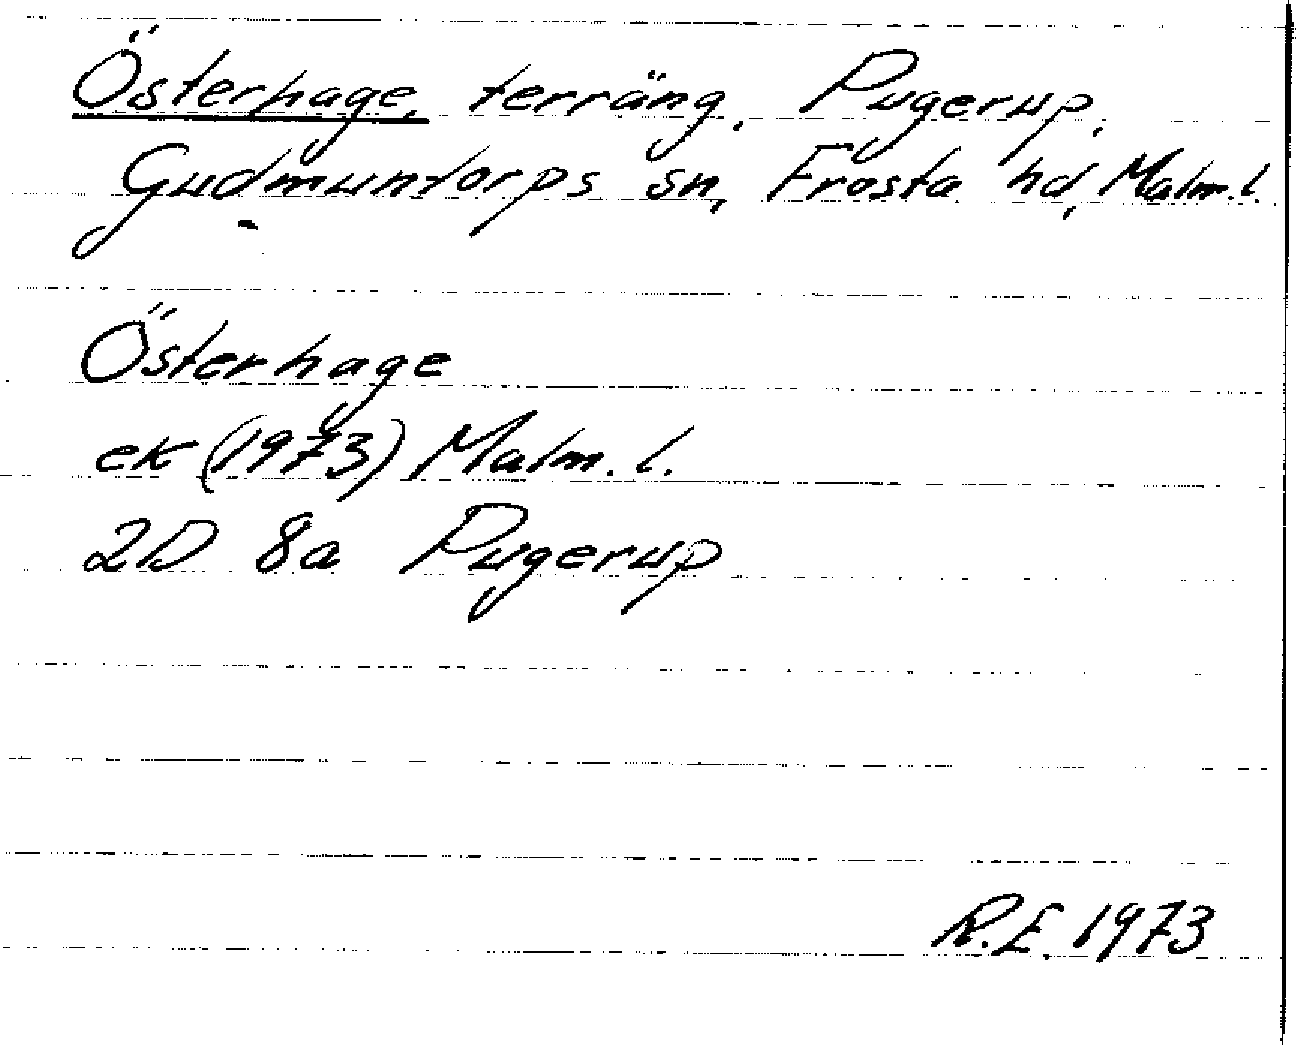 Österhage, terräng, Pugerup,
Gudmuntorps sn, Frosta hd, Malm.l.
Österhage
ek (1973) Malm. l.
2D 8a Pugerup
R.E. 1973